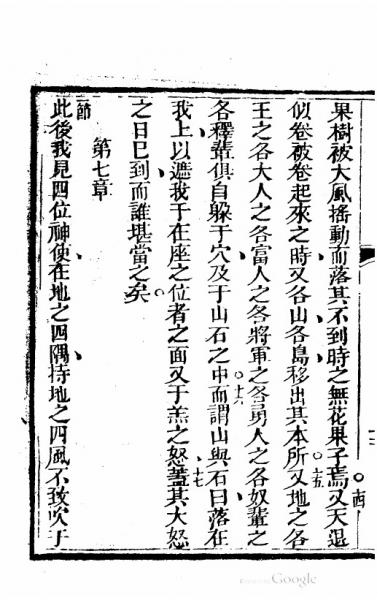 果樹被大風搖動而落其不到時之無花果子焉又天退
十四
似卷被卷起來之時又各山各島移出其本所又地之各
十五
王之各大人之各富人之各將軍之各勇人之各奴輩之
各釋輩俱自躲于穴及于山石之中而謂山與石曰落在
十六
我上以遮我于在座之位者之面又于羔之怒蓋其大怒
十七
之日已到而誰堪當之矣
第七章
節
此後我見四位神使在地之四隅持地之四風不致吹于
Google